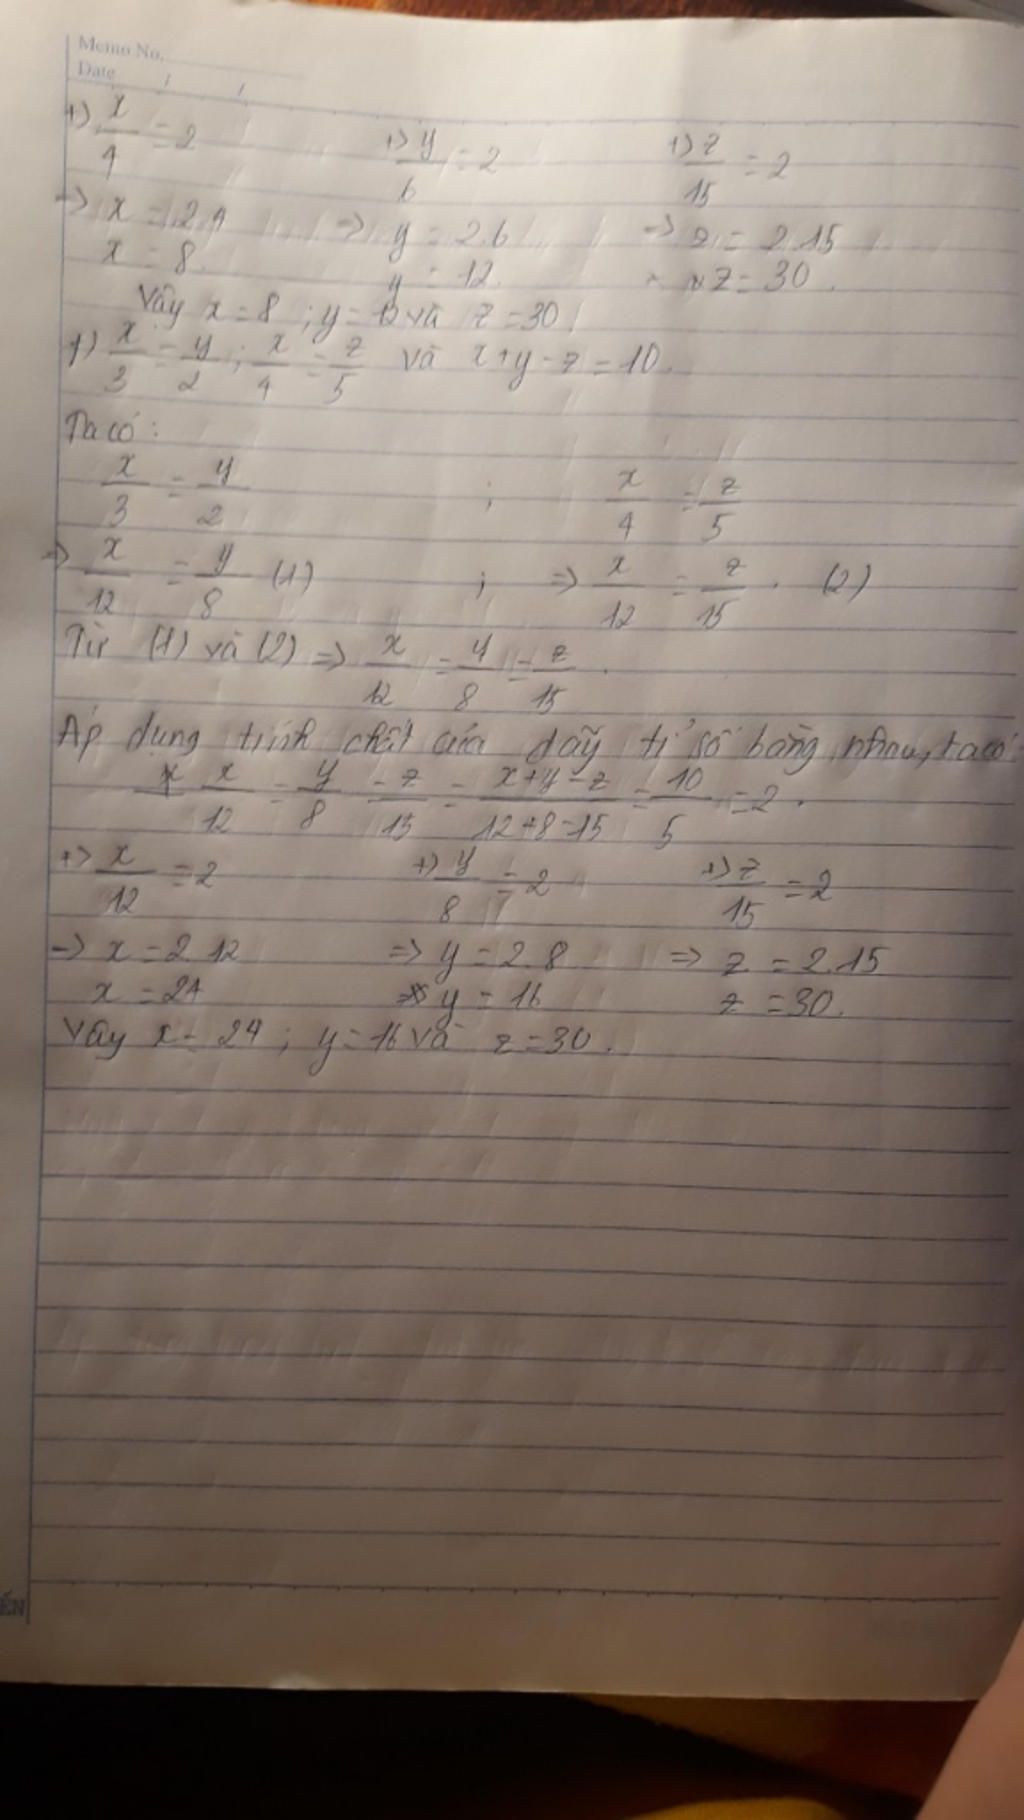 Memo No.
Date / /
+) x/4 = 2 +) y/6 = 2 +) z/15 = 2
=> x = 2.4 => y = 2.6 => z = 2.15
x = 8 y = 12 z = 30.
Vây x = 8 ; y = 12 và z = 30
f) x/3 = y/2 ; x/4 = z/5 và x+y-z = 10.
Ta có:
x/3 = y/2 ; x/4 = z/5
=> x/12 = y/8 (1) ; => x/12 = z/15 . (2)
Từ (1) và (2) => x/12 = y/8 = z/15 .
Áp dụng tính chất của dãy tỉ số bằng nhau, ta có:
x/12 = y/8 = z/15 = x+y-z/12+8-15 = 10/5 = 2 .
+) x/12 = 2 +) y/8 = 2 +) z/15 = 2
=> x = 2.12 => y = 2.8 => z = 2.15
x = 24 y = 16 z = 30.
Vây x = 24 ; y = 16 và z = 30 .
ẾN